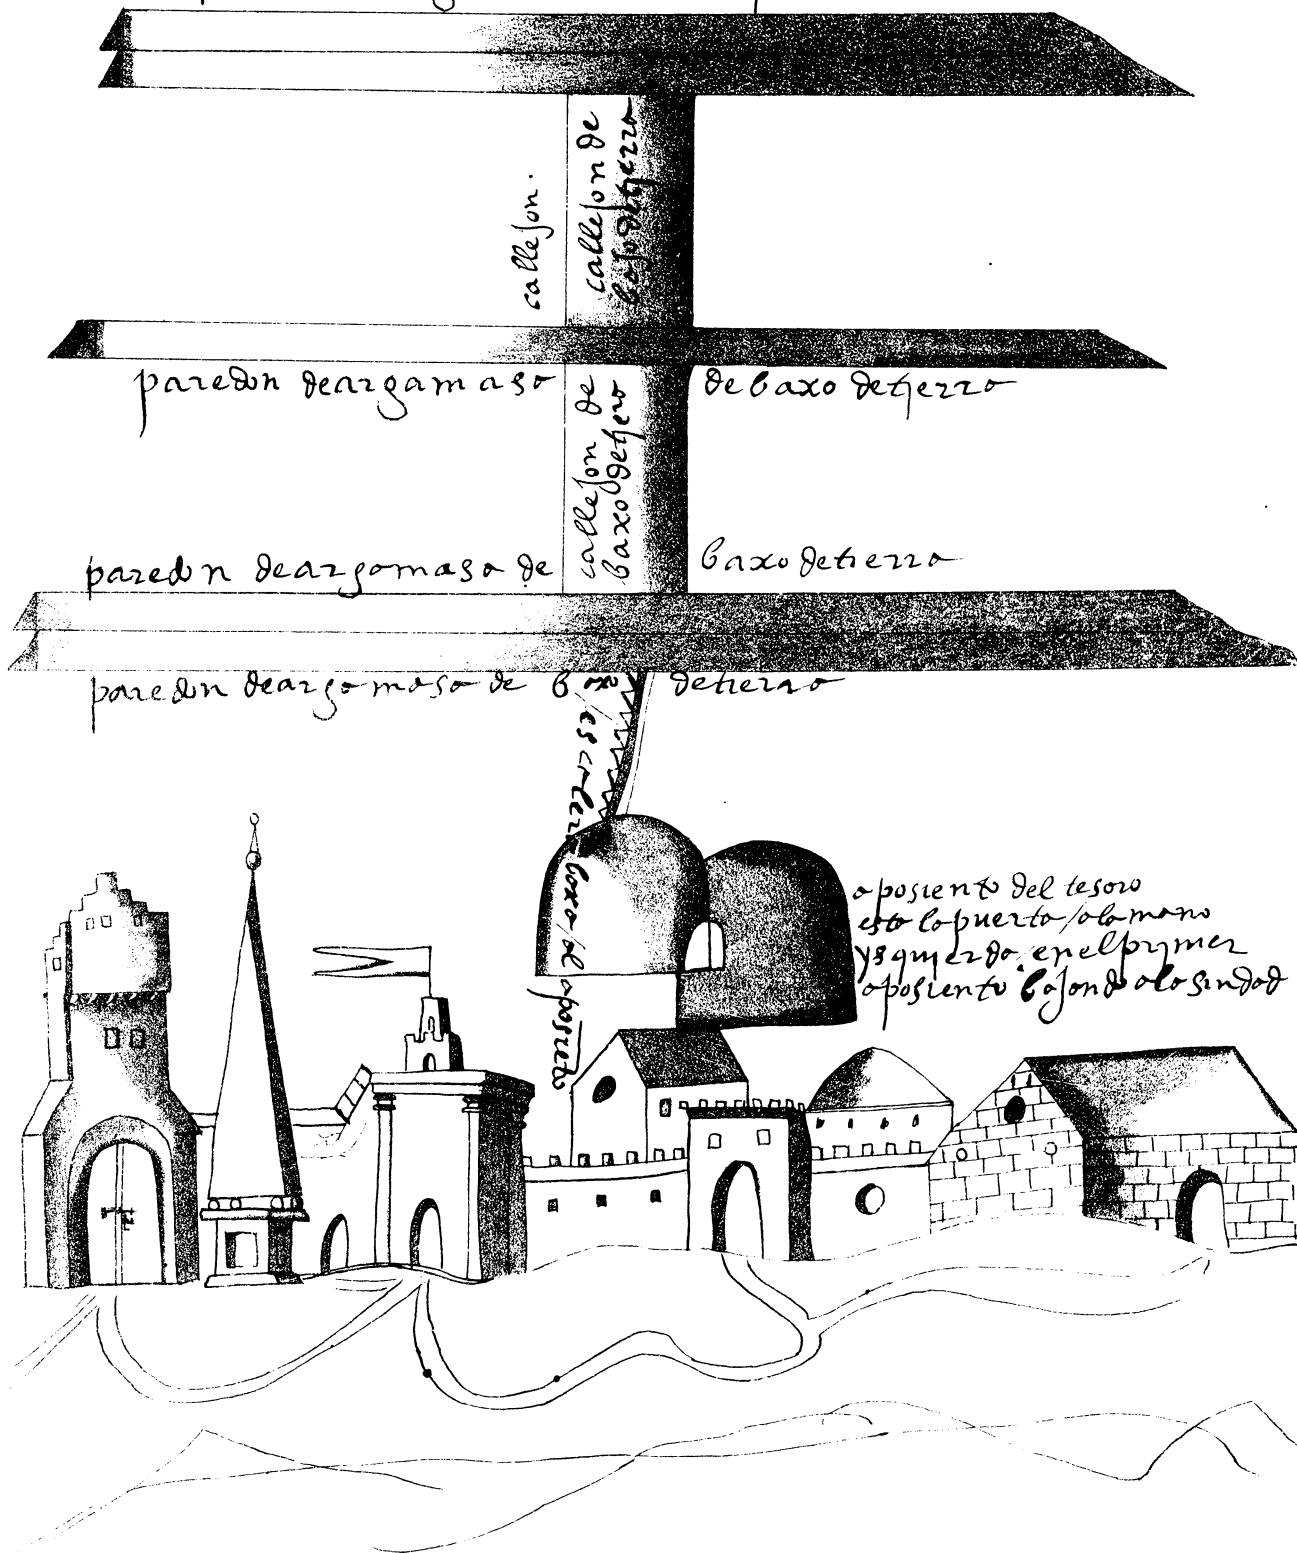 callejon.
callejon de
bajo detierra
paredon deargamasa
de baxo detierra
callejon de
baxo detiera
paredon deargamasa de
baxo detierra
paredon deargamasa de baxo detierra
escalera baxa al aposieto
aposiento del tesoro
esta la puerta / a la mano
ysquierda en el prymer
aposiento bajondo a la